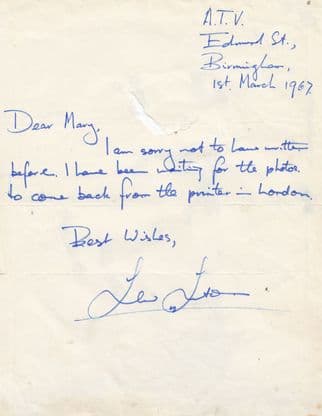 A.T.V.
Edmund St.,
Birmingham,
1st. March 1967.
Dear Mary,
I am sorry not to have written
before. I have been waiting for the photos.
to come back from the printer in London.
Best Wishes,